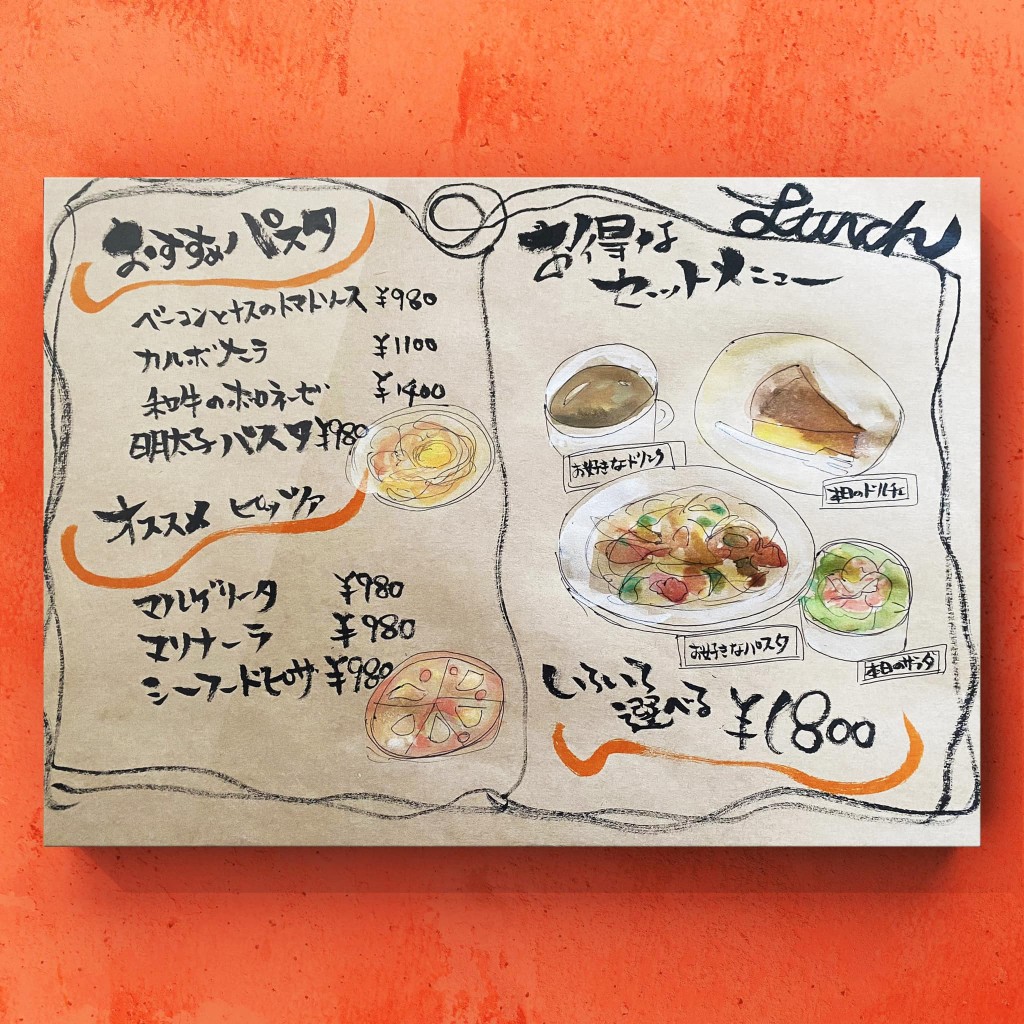 おすすめパスタ
ベーコンとナスのトマトソース ¥980
カルボナーラ ¥1100
和牛のボロネーゼ ¥1400
明太子パスタ ¥980
オススメ ピッツァ
マルゲリータ ¥980
マリナーラ ¥980
シーフードピザ ¥980
Lunch
お得な
セットメニュー
お好きなドリンク
本日のドルチェ
お好きなパスタ
本日のサラダ
いろいろ
選べる ¥1800